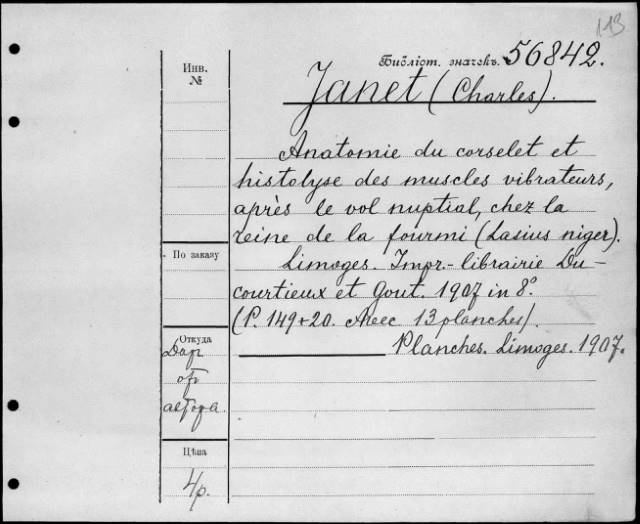 113
Библіот. значекъ. 56842.
Инв.
№
Janet (Charles).
Anatomie du corselet et
histolyse des muscles vibrateurs,
après le vol nuptial, chez la
reine de la fourmi (Lasius niger).
По заказу
Limoges. Impr.-librairie Du-
courtieux et Gout. 1907 in 8°.
(P. 149+20. Avec 13 planches).
Откуда
Planches. Limoges. 1907.
Дар
от
автора
Цѣна
4р.